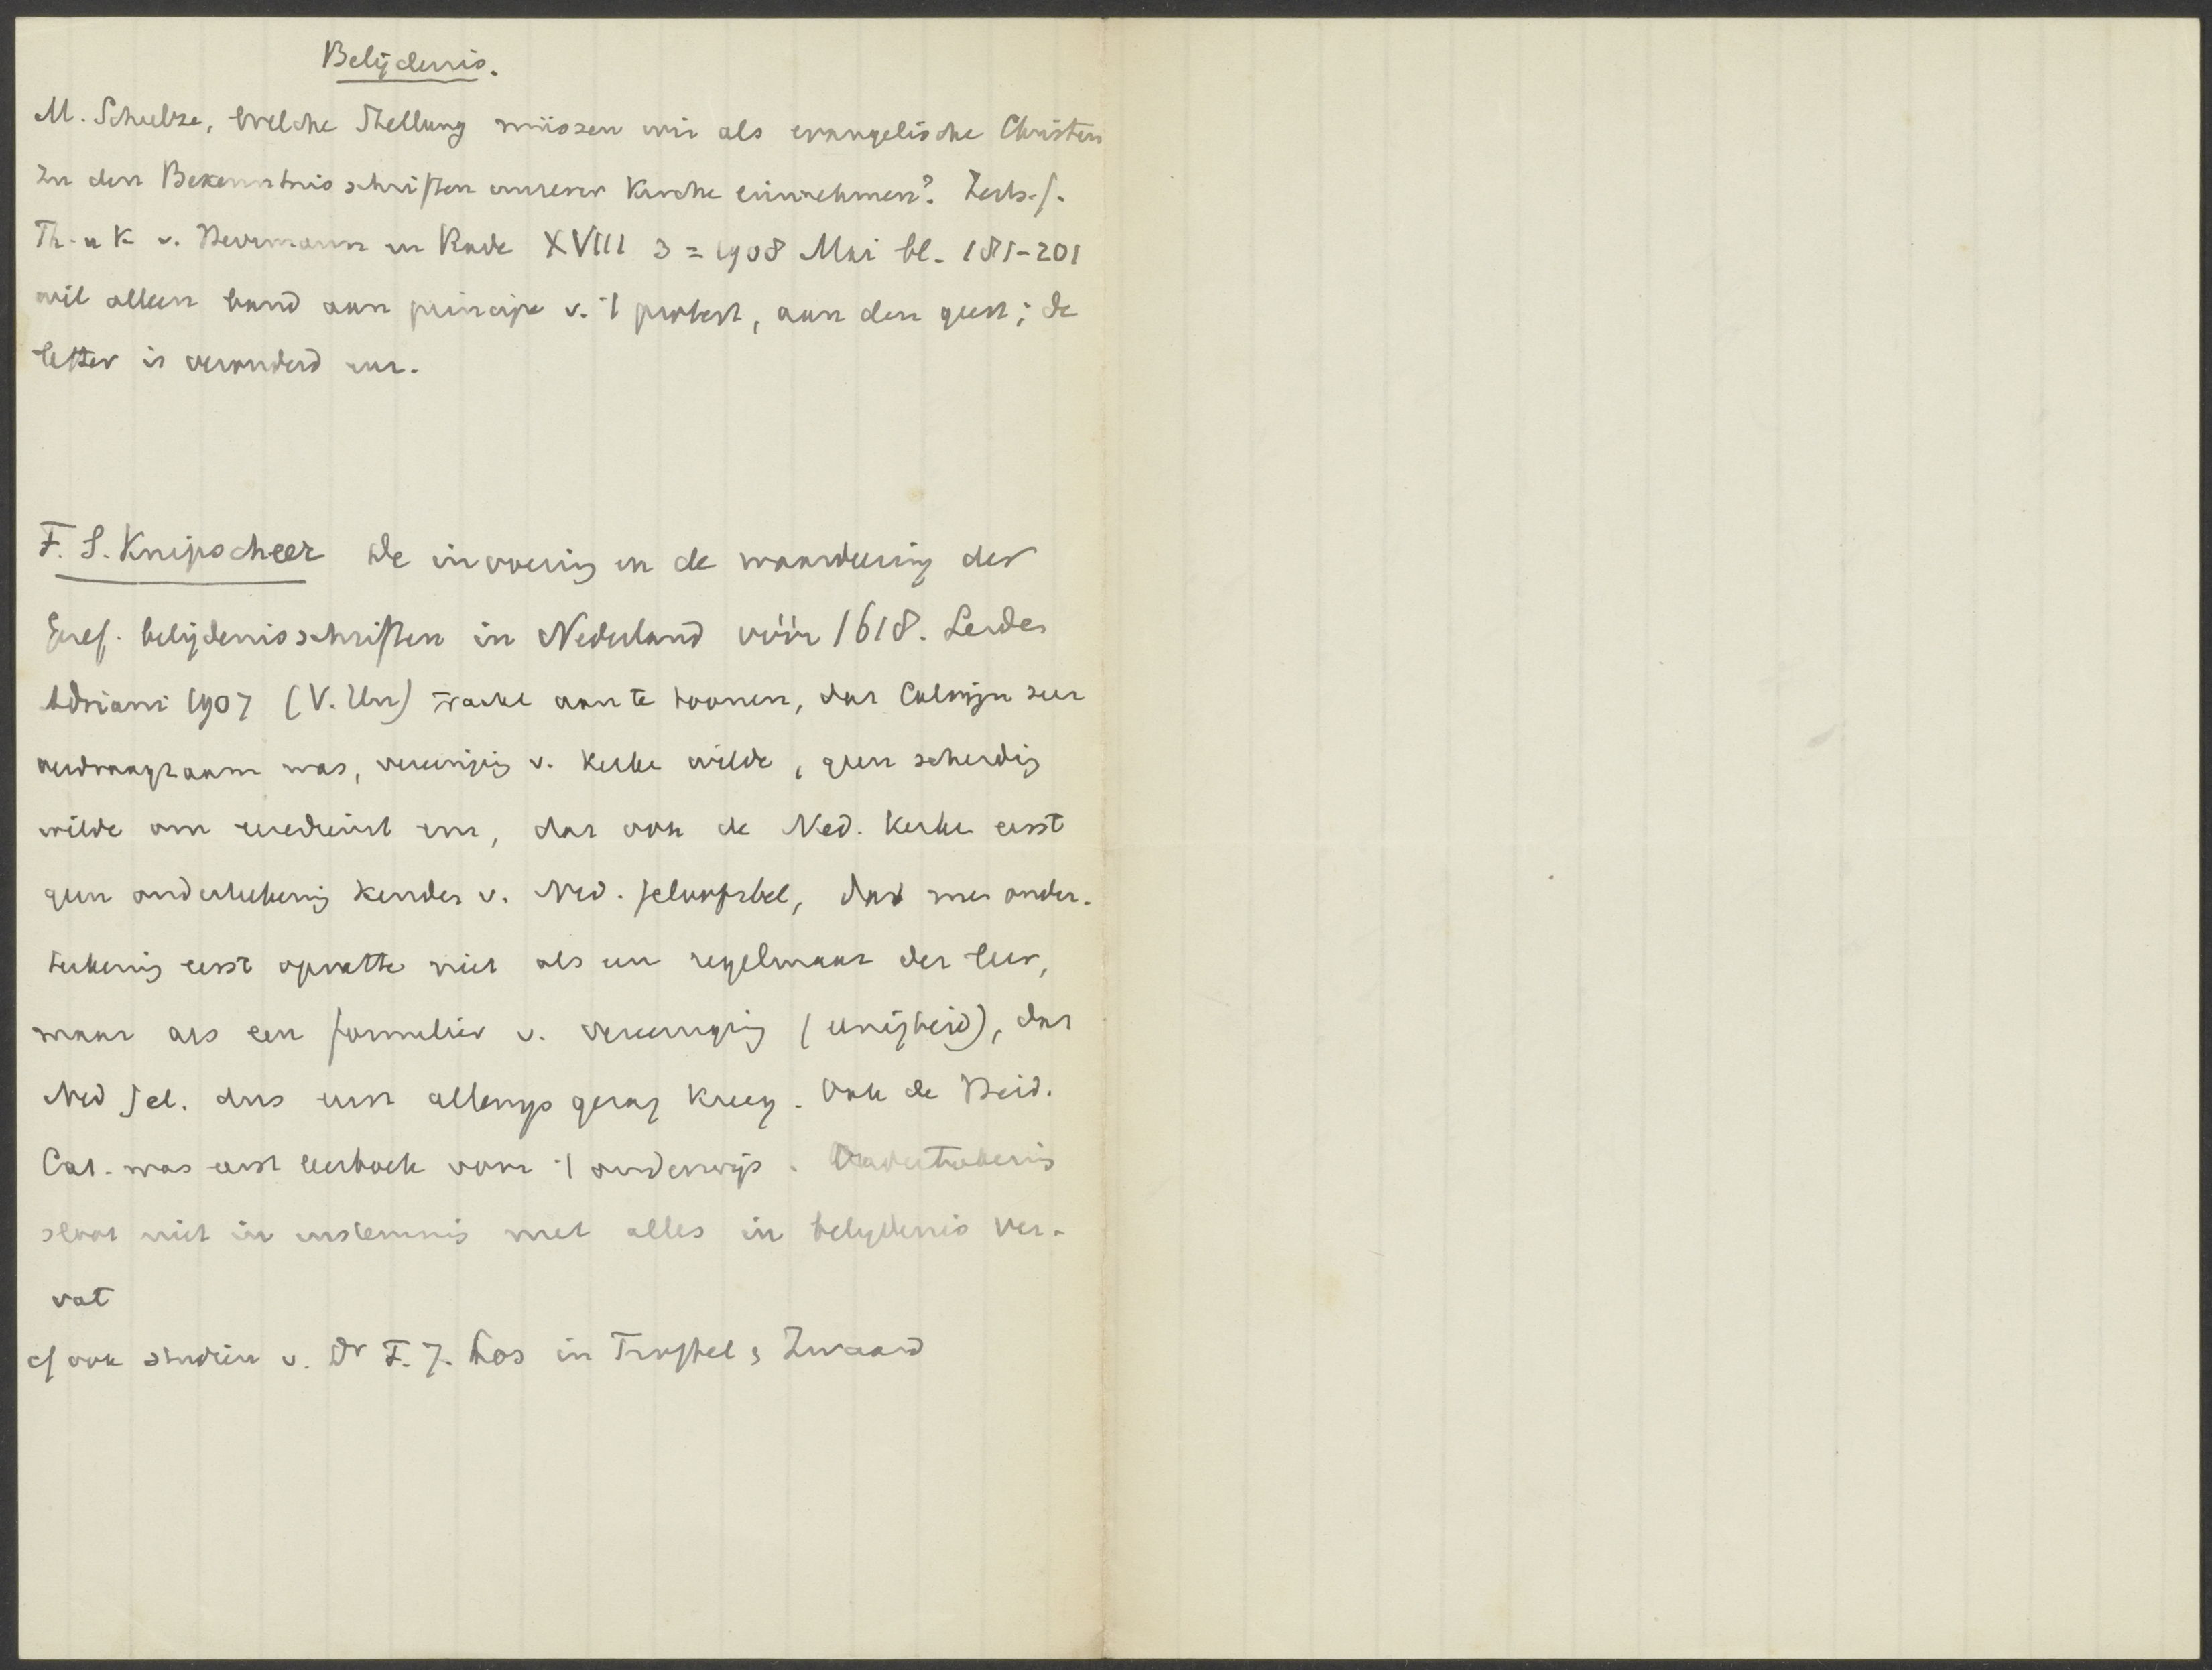 Belijdenis.
M. Schulze, Welche Stellung müssen wir als evangelische Christen
zu den Bekenntnisschriften unserer Kirche einnehmen? Zeits. f.
Th. u K v. Herrmann u Rade XVIII 3 = 1908 Mai bl. 181-201
wil alleen band aan principe v. 't protest, aan den geest; de
letter is veranderd enz.
F. S. Knipscheer De invoering en de waardeering der
Geref. belijdenisschriften in Nederland vóór 1618. Leiden
Adriani 1907 (V. Un) tracht aan te toonen, dat Calvijn zeer
verdraagzaam was, vereeniging v. kerken wilde, geen scheiding
wilde om eeredienst enz, dat ook de Ned. kerken eerst
geen onderteekening kenden v. Ned. geloofsbel, dat men onder-
teekening eerst opvatte niet als een regelmaat der leer,
maar als een formulier v. vereeniging (eenigheid), dat
Ned gel. dus eerst allengs gezag kreeg. Ook de Heid.
Cat. was eerst leerboek voor 't onderwijs. Onderteekening
sloot niet in instemming met alles in belijdenis ver-
vat
cf ook studiën v. Dr F. J. Los in Troffel & Zwaard